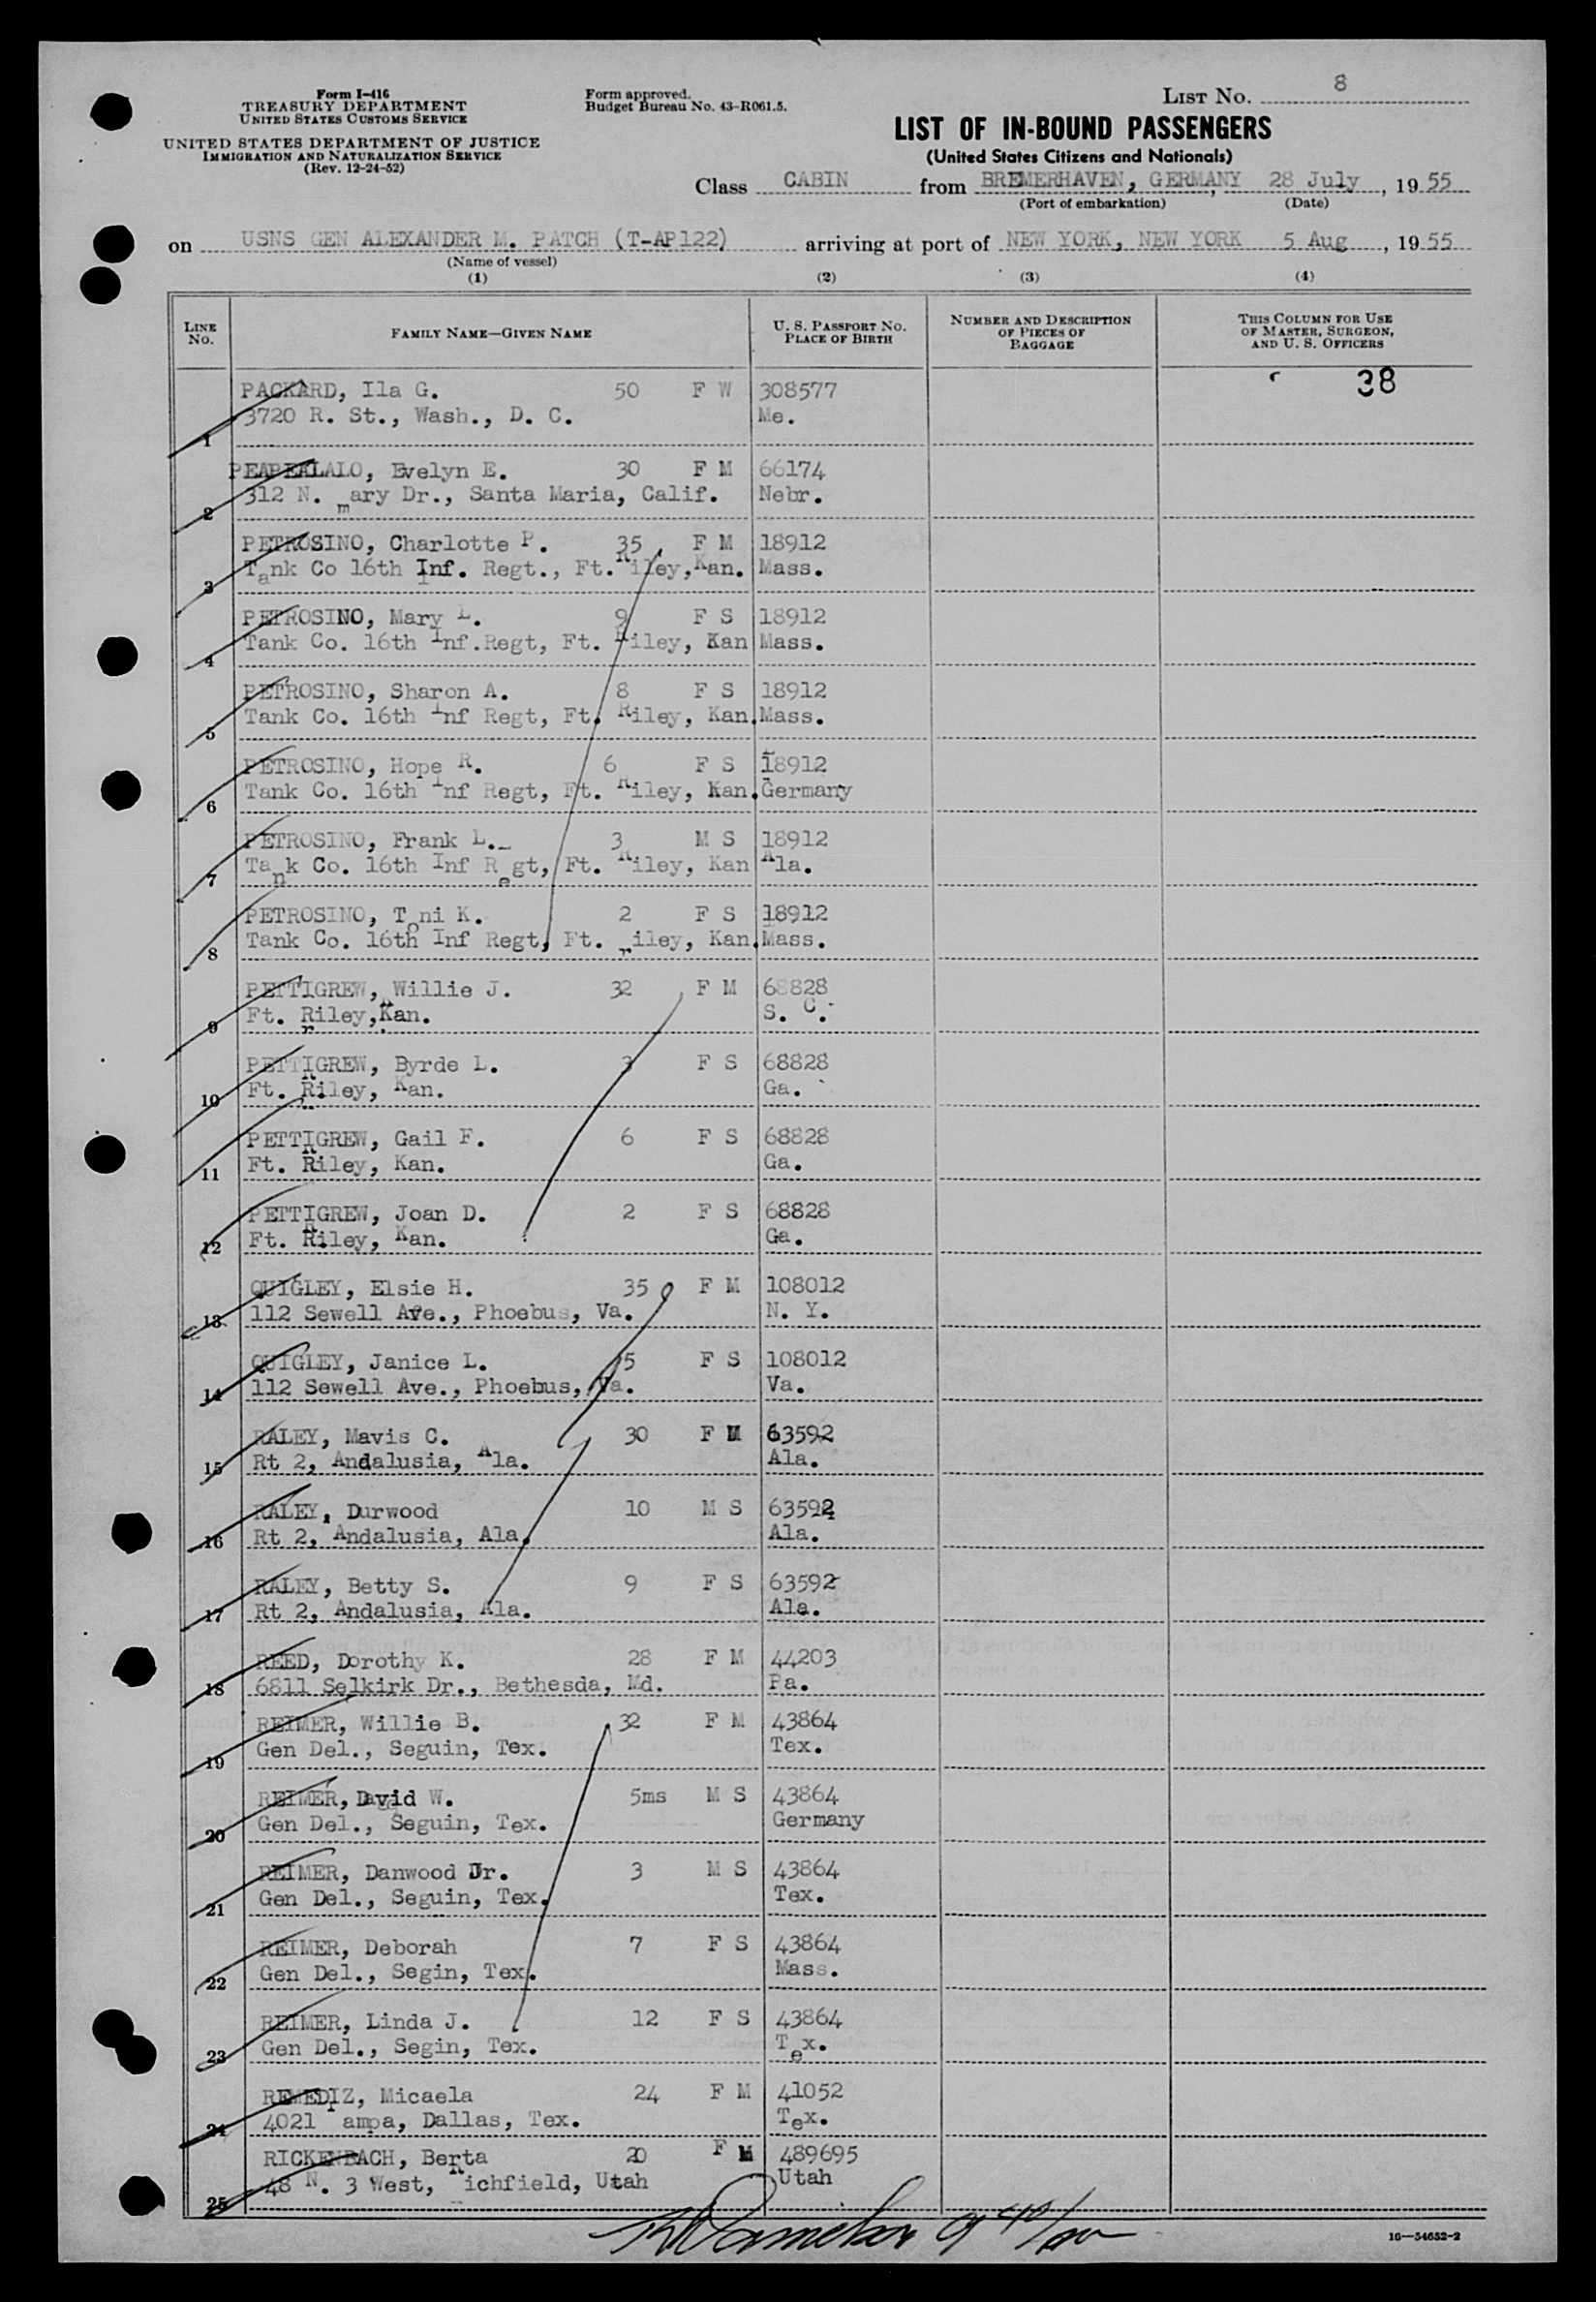 Form I-416
TREASURY DEPARTMENT
UNITED STATES CUSTOMS SERVICE
UNITED STATES DEPARTMENT OF JUSTICE
IMMIGRATION AND NATURALIZATION SERVICE
(Rev. 12-24-52)
Form approved.
Budget Bureau No. 43-R061.5.
LIST No. 8
LIST OF IN-BOUND PASSENGERS
(United States Citizens and Nationals)
Class CABIN from BREMERHAVEN, GERMANY, 28 July, 1955
(Port of embarkation) (Date)
on USNS GEN ALEXANDER M. PATCH (T-AP122) arriving at port of NEW YORK, NEW YORK 5 Aug, 1955
(Name of vessel)
(1) (2) (3) (4)
LINE No. FAMILY NAME—GIVEN NAME U. S. PASSPORT No. PLACE OF BIRTH NUMBER AND DESCRIPTION OF PIECES OF BAGGAGE THIS COLUMN FOR USE OF MASTER, SURGEON, AND U. S. OFFICERS
38
PACKARD, Ila G. 50 F W 308577
1 3720 R. St., Wash., D. C. Me.
Evelyn E. 30 F M 66174
2 312 N. mary Dr., Santa Maria, Calif. Nebr.
PETROSINO, Charlotte P. 35 F M 18912
3 Tank Co 16th Inf. Regt., Ft. Riley, Kan. Mass.
PETROSINO, Mary L. 9 F S 18912
4 Tank Co. 16th Inf.Regt, Ft. Riley, Kan Mass.
PETROSINO, Sharon A. 8 F S 18912
5 Tank Co. 16th Inf Regt, Ft. Riley, Kan. Mass.
PETROSINO, Hope R. 6 F S 18912
6 Tank Co. 16th Inf Regt, Ft. Riley, Kan. Germany
PETROSINO, Frank L. 3 M S 18912
7 Tank Co. 16th Inf Regt, Ft. Riley, Kan Ala.
PETROSINO, Toni K. 2 F S 18912
8 Tank Co. 16th Inf Regt, Ft. riley, Kan. Mass.
PETTIGREW, Willie J. 32 F M 68828
9 Ft. Riley, Kan. S. C.
PETTIGREW, Byrde L. 3 F S 68828
10 Ft. Riley, Kan. Ga.
PETTIGREW, Gail F. 6 F S 68828
11 Ft. Riley, Kan. Ga.
PETTIGREW, Joan D. 2 F S 68828
12 Ft. Riley, Kan. Ga.
QUIGLEY, Elsie H. 35 F M 108012
13 112 Sewell Ave., Phoebus, Va. N. Y.
QUIGLEY, Janice L. 5 F S 108012
14 112 Sewell Ave., Phoebus, Va. Va.
RALEY, Mavis C. 30 F M 63592
15 Rt 2, Andalusia, Ala. Ala.
RALEY, Durwood 10 M S 63592
16 Rt 2, Andalusia, Ala. Ala.
RALEY, Betty S. 9 F S 63592
17 Rt 2, Andalusia, Ala. Ala.
REED, Dorothy K. 28 F M 44203
18 6811 Selkirk Dr., Bethesda, Md. Pa.
REIMER, Willie B. 32 F M 43864
19 Gen Del., Seguin, Tex. Tex.
REIMER, David W. 5ms M S 43864
20 Gen Del., Seguin, Tex. Germany
REIMER, Danwood Jr. 3 M S 43864
21 Gen Del., Seguin, Tex. Tex.
REIMER, Deborah 7 F S 43864
22 Gen Del., Segin, Tex. Mass.
REIMER, Linda J. 12 F S 43864
23 Gen Del., Segin, Tex. Tex.
REMEDIZ, Micaela 24 F M 41052
24 4021 ampa, Dallas, Tex. Tex.
RICKENBACH, Berta 20 F M 489695
25 48 N. 3 West, Richfield, Utah Utah
16—54652-2